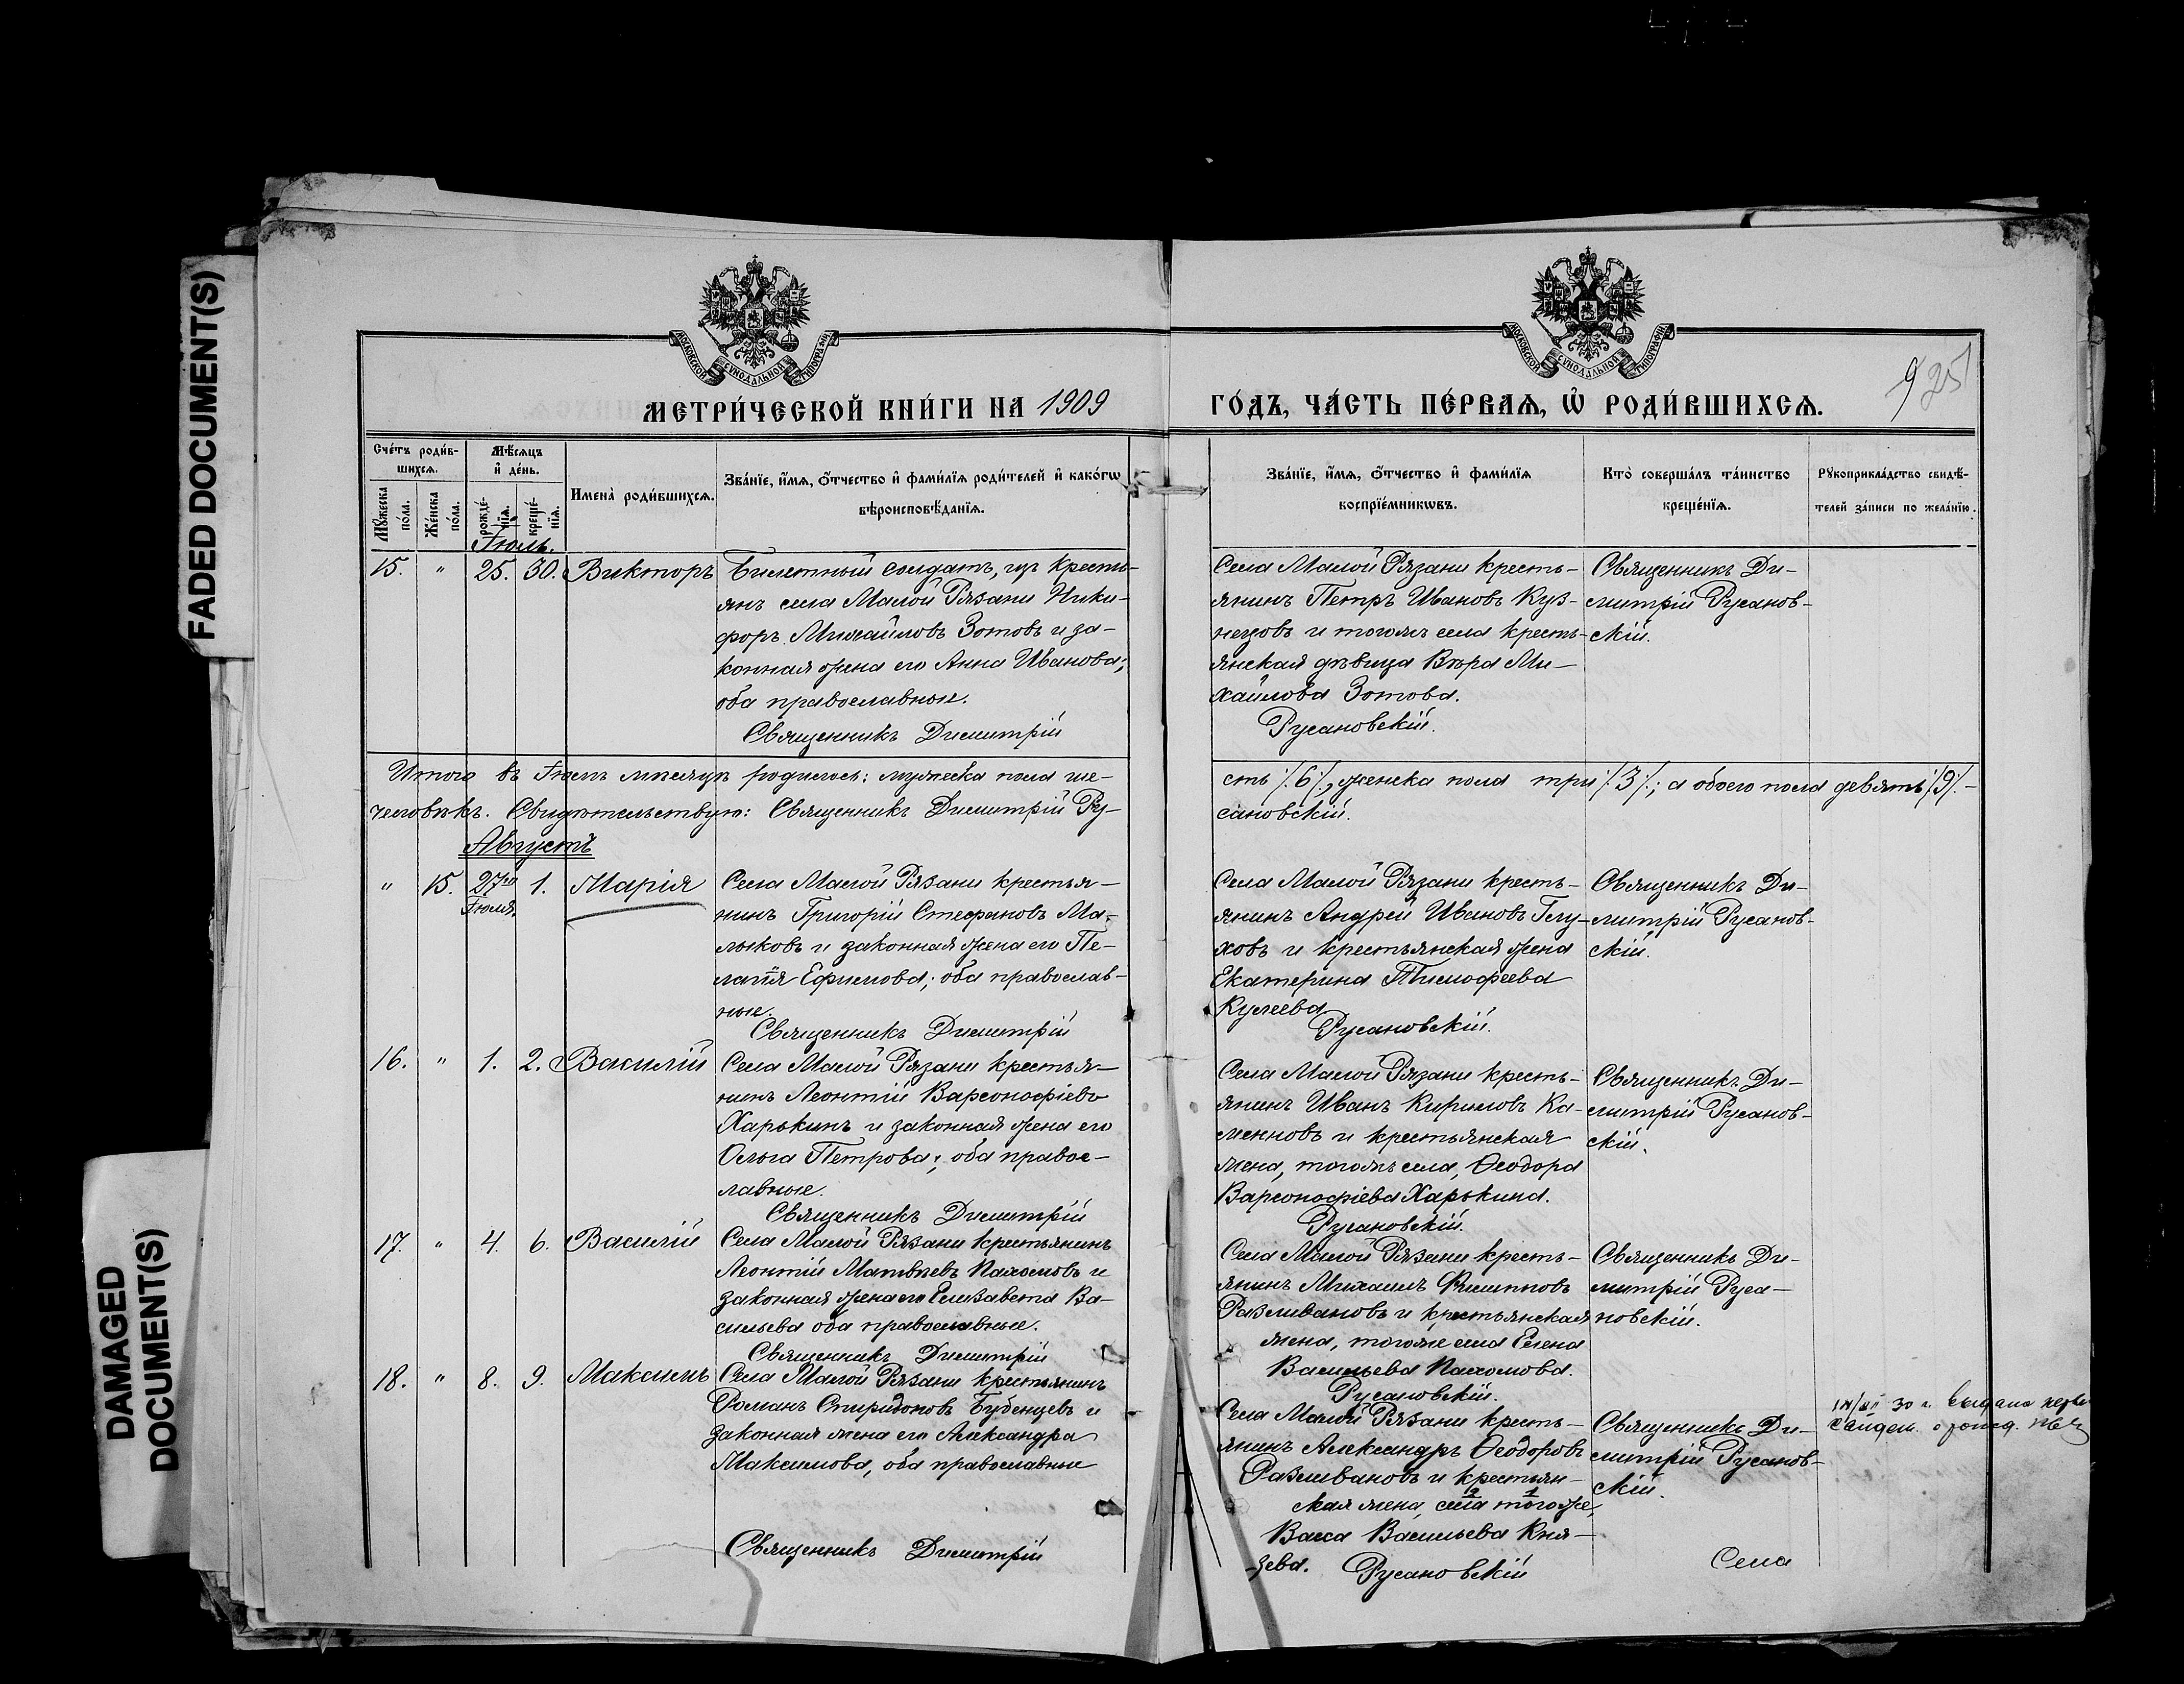 FADED DOCUMENT(S)
DAMAGED
DOCUMENT(S)
МОСКОВСКОЙ СѴНОДАЛЬНОЙ ТИПОГРАФІИ
МОСКОВСКОЙ СѴНОДАЛЬНОЙ ТИПОГРАФІИ
925
МЕТРИ́ЧЕСКОЙ КНИ́ГИ НА 1909
ГО́ДЪ, ЧА́СТЬ ПЕ́РВАѦ, Ѡ҆ РОДИ́ВШИХСѦ.
Сче́тъ роди́в-
шихсѧ.
Мѣ́сѧцъ
и҆ де́нь.
Мꙋ́жеска
по́ла.
Же́нска
по́ла.
рожде́-
нїѧ.
креще́-
нїѧ.
Имена̀ роди́вшихсѧ.
Зва́нїе, и҆́мѧ, ѻ҆́тчество и҆ фами́лїѧ роди́телей и҆ како́гѡ
вѣроисповѣ́данїѧ.
Зва́нїе, и҆́мѧ, ѻ҆́тчество и҆ фами́лїѧ
воспрїе́мникѡвъ.
Кто̀ соверша́лъ та́инство
креще́нїѧ.
Рꙋкоприкла́дство свидѣ́-
телей за́писи по жела́нїю.
Іюль.
15. " 25. 30. Викторъ
Билетный солдатъ, изъ кресть-
янъ села Малой Рязани Ники-
форъ Михайловъ Зотовъ и за-
конная жена его Анна Иванова;
оба православные.
Священникъ Димитрій
Села Малой Рязани кресть-
янинъ Петръ Ивановъ Куз-
нецовъ и тогожъ села кресть-
янская дѣвица Вѣра Ми-
хайлова Зотова.
Русановскій.
Священникъ Ди-
митрій Русанов-
скій.
Итого въ Іюлѣ мѣсяцѣ родилось: мужеска пола ше-
сть /6/, женска пола три /3/; а обоего пола девять /9/ -
человѣкъ. Свидѣтельствую: Священникъ Димитрій Ру-
сановскій.
Августъ
" 15. 27го 1. Марія
Іюля.
Села Малой Рязани крестья-
нинъ Григорій Стефановъ Ма-
лыковъ и законная жена его Пе-
лагія Ефимова; оба православ-
ные.
Священникъ Димитрій
Села Малой Рязани кресть-
янинъ Андрей Ивановъ Глу-
ховъ и крестьянская жена
Екатерина Тимофеева
Кулеева
Русановскій.
Священникъ Ди-
митрій Русанов-
скій.
16. " 1. 2. Василій
Села Малой Рязани крестья-
нинъ Леонтій Варсонофіевъ
Харькинъ и законная жена его
Ольга Петрова; оба право-
лавные.
Священникъ Димитрій
Села Малой Рязани кресть-
янинъ Иванъ Кириловъ Ка-
менновъ и крестьянская
жена, тогожъ села, Ѳеодора
Варсонофіева Харькина.
Русановскій.
Священникъ Ди-
митрій Русанов-
скій.
17. " 4. 6. Василій
Села Малой Рязани крестьянинъ
Леонтій Матвѣевъ Пахомовъ и
законная жена его Елизавета Ва-
сильева оба православные.
Священникъ Димитрій
Села Малой Рязани кресть-
янинъ Михаилъ Филипповъ
Разливановъ и крестьянская
жена, тогоже села Елена
Васильева Пахомова.
Русановскій.
Священникъ Ди-
митрій Руса-
новскій.
18. " 8. 9. Максимъ
Села Малой Рязани крестьянинъ
Романъ Спиридоновъ Бубенцевъ и
законная жена его Александра
Максимова, оба православные
Священникъ Димитрій
Села Малой Рязани кресть-
янинъ Александръ Ѳеодоровъ
Разливановъ и крестьян-
ская жена, села тогоже,
Васса Васильева Кня-
зева.
Русановскій
Священникъ Ди-
митрій Русанов-
скій.
30 г. выдана
о рожд.
Села